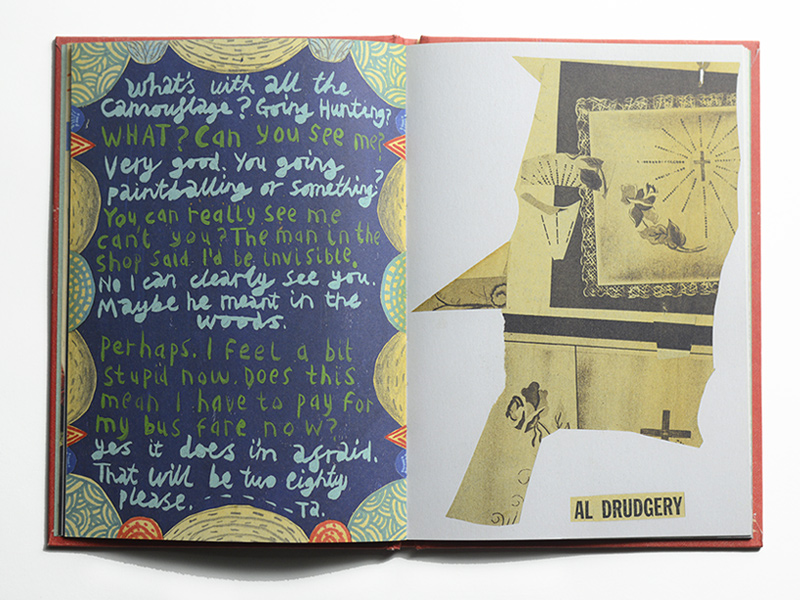 What's with all the
Camouflage? Going Hunting?
WHAT? Can you see me?
Very good. You going
paintballing or something?
You can really see me
can't you? The man in the
shop said I'd be invisible.
No I can clearly see you.
Maybe he meant in the
woods.
perhaps. I feel a bit
stupid now. Does this
mean I have to pay for
my bus fare now?
yes it does i'm afraid.
That will be two eighty
please.
Ta.
AL DRUDGERY